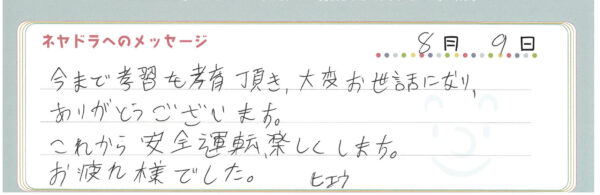 ネヤドラへのメッセージ
8月 9日
今まで孝習を教育頂き、大変お世話になり、
ありがとうございます。
これから安全運転、楽しくします。
お疲れ様でした。 ヒエウ